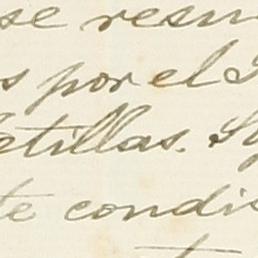 se resu
s por el
etillas.
te condi